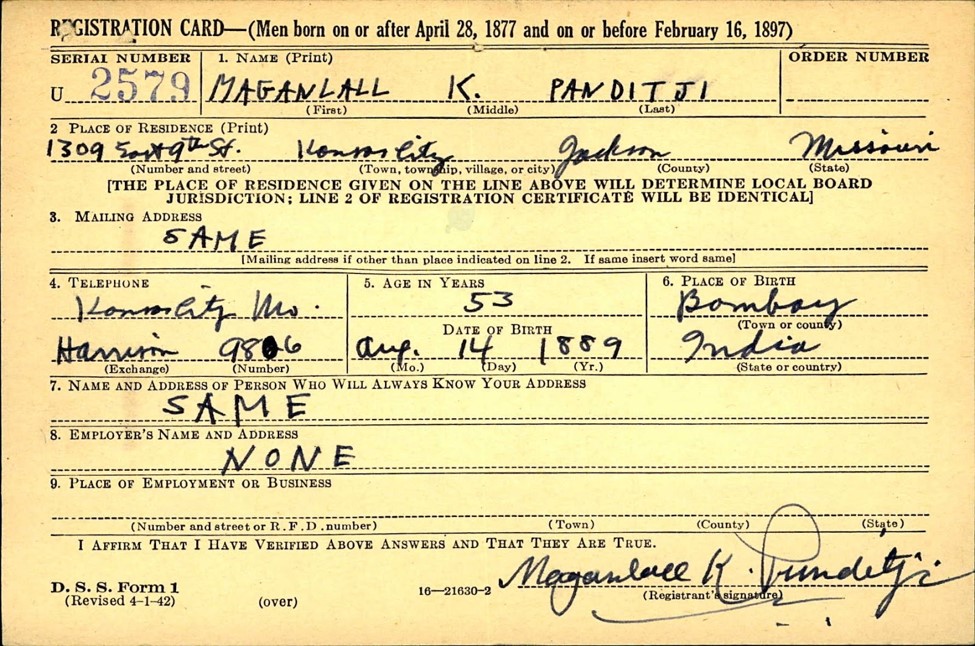 REGISTRATION CARD—(Men born on or after April 28, 1877 and on or before February 16, 1897)
SERIAL NUMBER 1. NAME (Print) ORDER NUMBER
U 2579 MAGANLALL K. PANDITJI
(First) (Middle) (Last)
2 PLACE OF RESIDENCE (Print)
1309 East 9th St. Kansas City Jackson Missouri
(Number and street) (Town, township, village, or city) (County) (State)
[THE PLACE OF RESIDENCE GIVEN ON THE LINE ABOVE WILL DETERMINE LOCAL BOARD
JURISDICTION; LINE 2 OF REGISTRATION CERTIFICATE WILL BE IDENTICAL]
3. MAILING ADDRESS
SAME
[Mailing address if other than place indicated on line 2. If same insert word same]
4. TELEPHONE 5. AGE IN YEARS 6. PLACE OF BIRTH
Kansas City Mo. 53 Bombay
DATE OF BIRTH (Town or county)
Harrison 9806 Aug. 14 1889 India
(Exchange) (Number) (Mo.) (Day) (Yr.) (State or country)
7. NAME AND ADDRESS OF PERSON WHO WILL ALWAYS KNOW YOUR ADDRESS
SAME
8. EMPLOYER'S NAME AND ADDRESS
NONE
9. PLACE OF EMPLOYMENT OR BUSINESS
(Number and street or R.F.D. number) (Town) (County) (State)
I AFFIRM THAT I HAVE VERIFIED ABOVE ANSWERS AND THAT THEY ARE TRUE.
Maganlall K. Punditji
D. S. S. Form 1 16—21630-2 (Registrant's signature)
(Revised 4-1-42) (over)